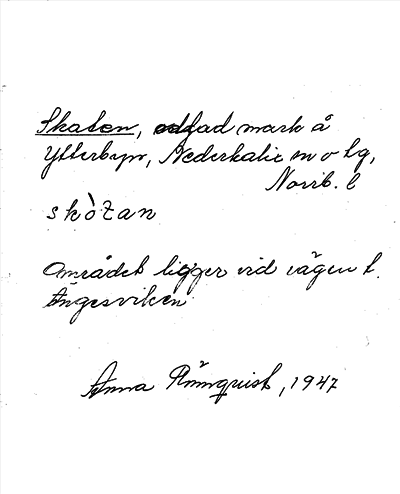 Skaten, odlad mark å
Ytterbyn, Nederkalix sn o tg,
Norrb. l
skò̀tan
Området ligger vid vägen t.
Ängesviken
Anna Rönnquist, 1947